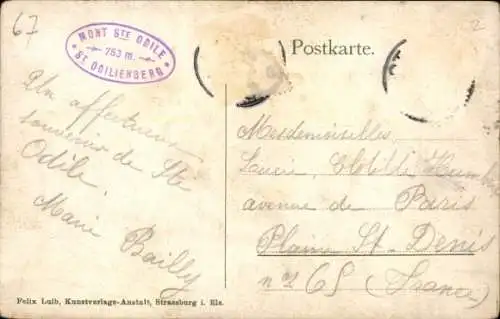 67
MONT STE ODILE
753 m.
ST ODILIENBERG
Postkarte.
2
Un affectueux
souvenir de Ste
Odile.
Marie
Bailly
Mesdemoiselles
Lucie, Clotilde
avenue de Paris
Plaine St-Denis
n° 65 (France)
Felix Luib, Kunstverlags-Anstalt, Strassburg i. Els.